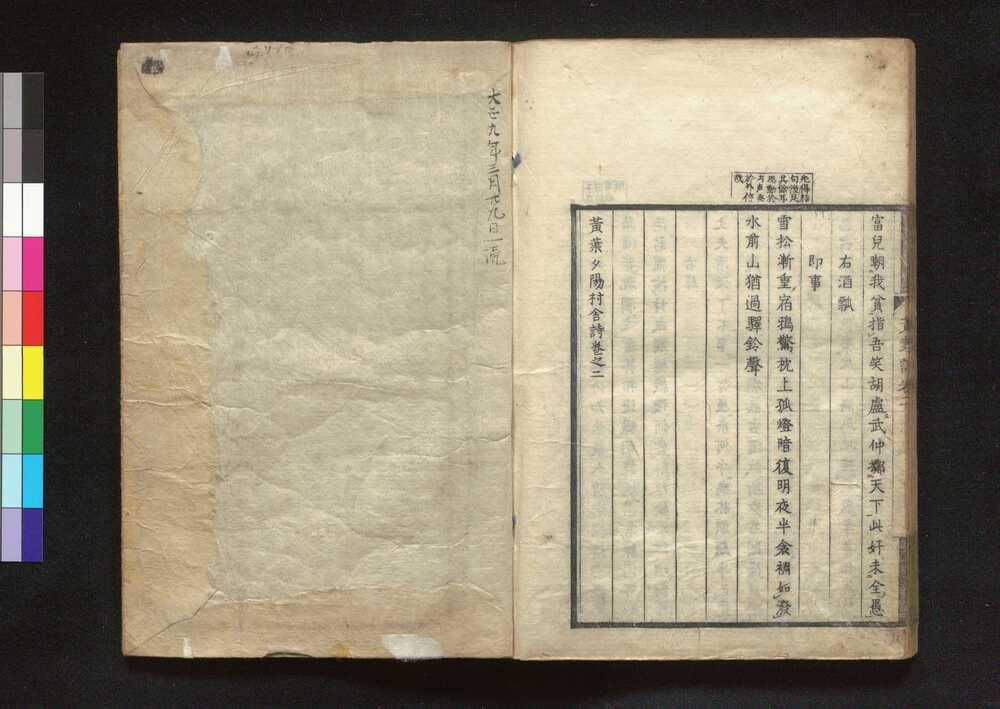 富兒嘲我貧指吾笑胡盧武仲擲天下此好未全愚
右酒瓢
即事
雪松漸重宿鴉驚枕上孤燈暗復明夜半衾裯如潑
水前山猶過驛鈴聲
黃葉夕陽村舍詩卷之二
大正九年三月廿九日一流